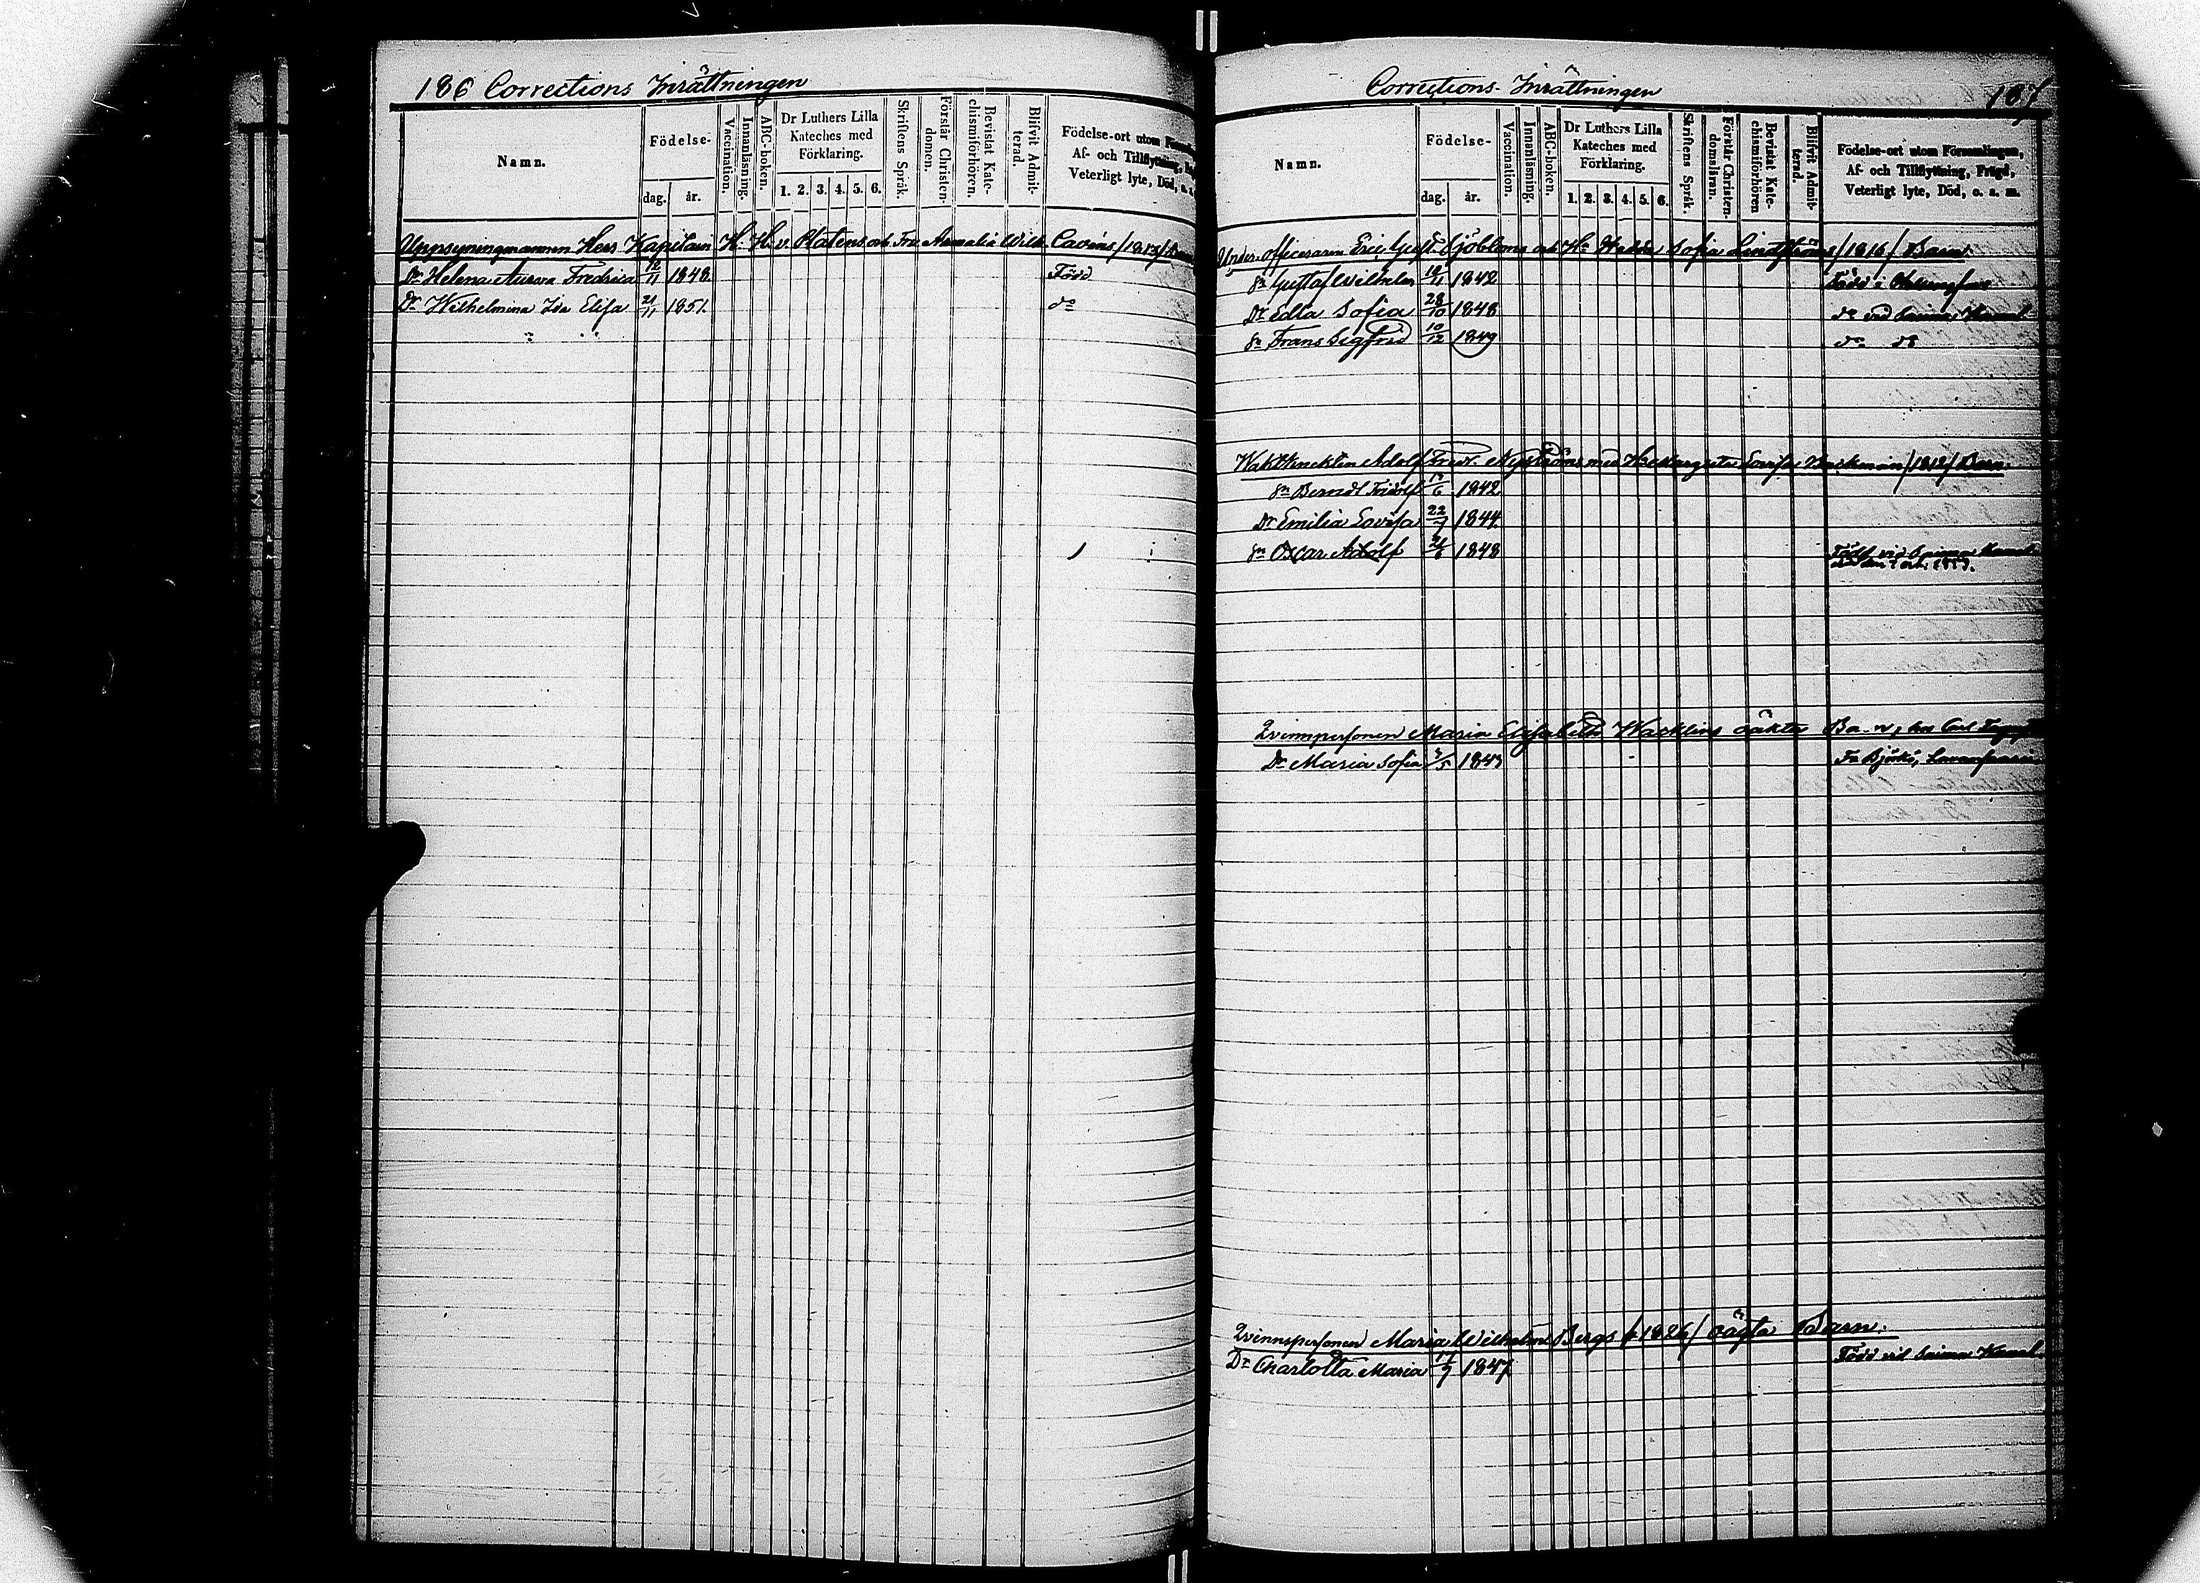 186 Corrections Inrättningen
Namn.
Födelse-
dag. år.
Vaccination.
Innanläsning.
ABC-boken.
Dr Luthers Lilla
Kateches med
Förklaring.
1. 2. 3. 4. 5. 6.
Skriftens Språk.
Förstår Christen-
domen.
Bevistat Kate-
chismiförhören.
Blifvit Admit-
terad.
Födelse-ort utom
Af- och Tillflyttning,
Veterligt lyte, Död, o. s.
Uppsyningmannen Herr Kapitain H. H. v. Platens och Fru Amalia Wilh.
Dr Helena Aurora Fredrica 12/11 1848 Född
Dr Wilhelmina Ida Elisa 21/11 1851. do
Corrections-Inrättningen 187
Namn.
Födelse-
dag. år.
Vaccination.
Innanläsning.
ABC-boken.
Dr Luthers Lilla
Kateches med
Förklaring.
1. 2. 3. 4. 5. 6.
Skriftens Språk.
Förstår Christen-
domsläran.
Bevistat Kate-
chismiförhören
Blifvit Admit-
terad.
Födelse-ort utom Församlingen,
Af- och Tillflyttning, Frägd,
Veterligt lyte, Död, o. s. m.
Under-officeraren Eric Gust. Sjöbloms och Hu Hedda Sofia Lindströms /1816/ Barn.
Sn Gustaf Wilhelm 18/11 1842 Född i Helsingfors
Dr Edla Sofia 28/10 1848 do vid Saima Kanal
Sn Frans Sigfrid 10/12 1849 do do
Adolf Fredr. Nyströms med Hu Margreta Lovisa Backman /1818/ Barn.
Sn Berndt Fridolf 17/6 1842
Dr Emilia Lovisa 22/7 1844.
Sn Oscar Adolf 1848 Född vid Saima Kanal
Qvinnspersonen Maria Elisabeth Wacklins oäkta Barn, hos Carl
Dr Maria Sofia 3/5 1843 Fr Björkö,
Qvinnspersonen Maria Wilhelm. Bergs f. 1826/ oägta Barn.
Dr Charlotta Maria 17/7 1847. Född vid Saima Kanal.